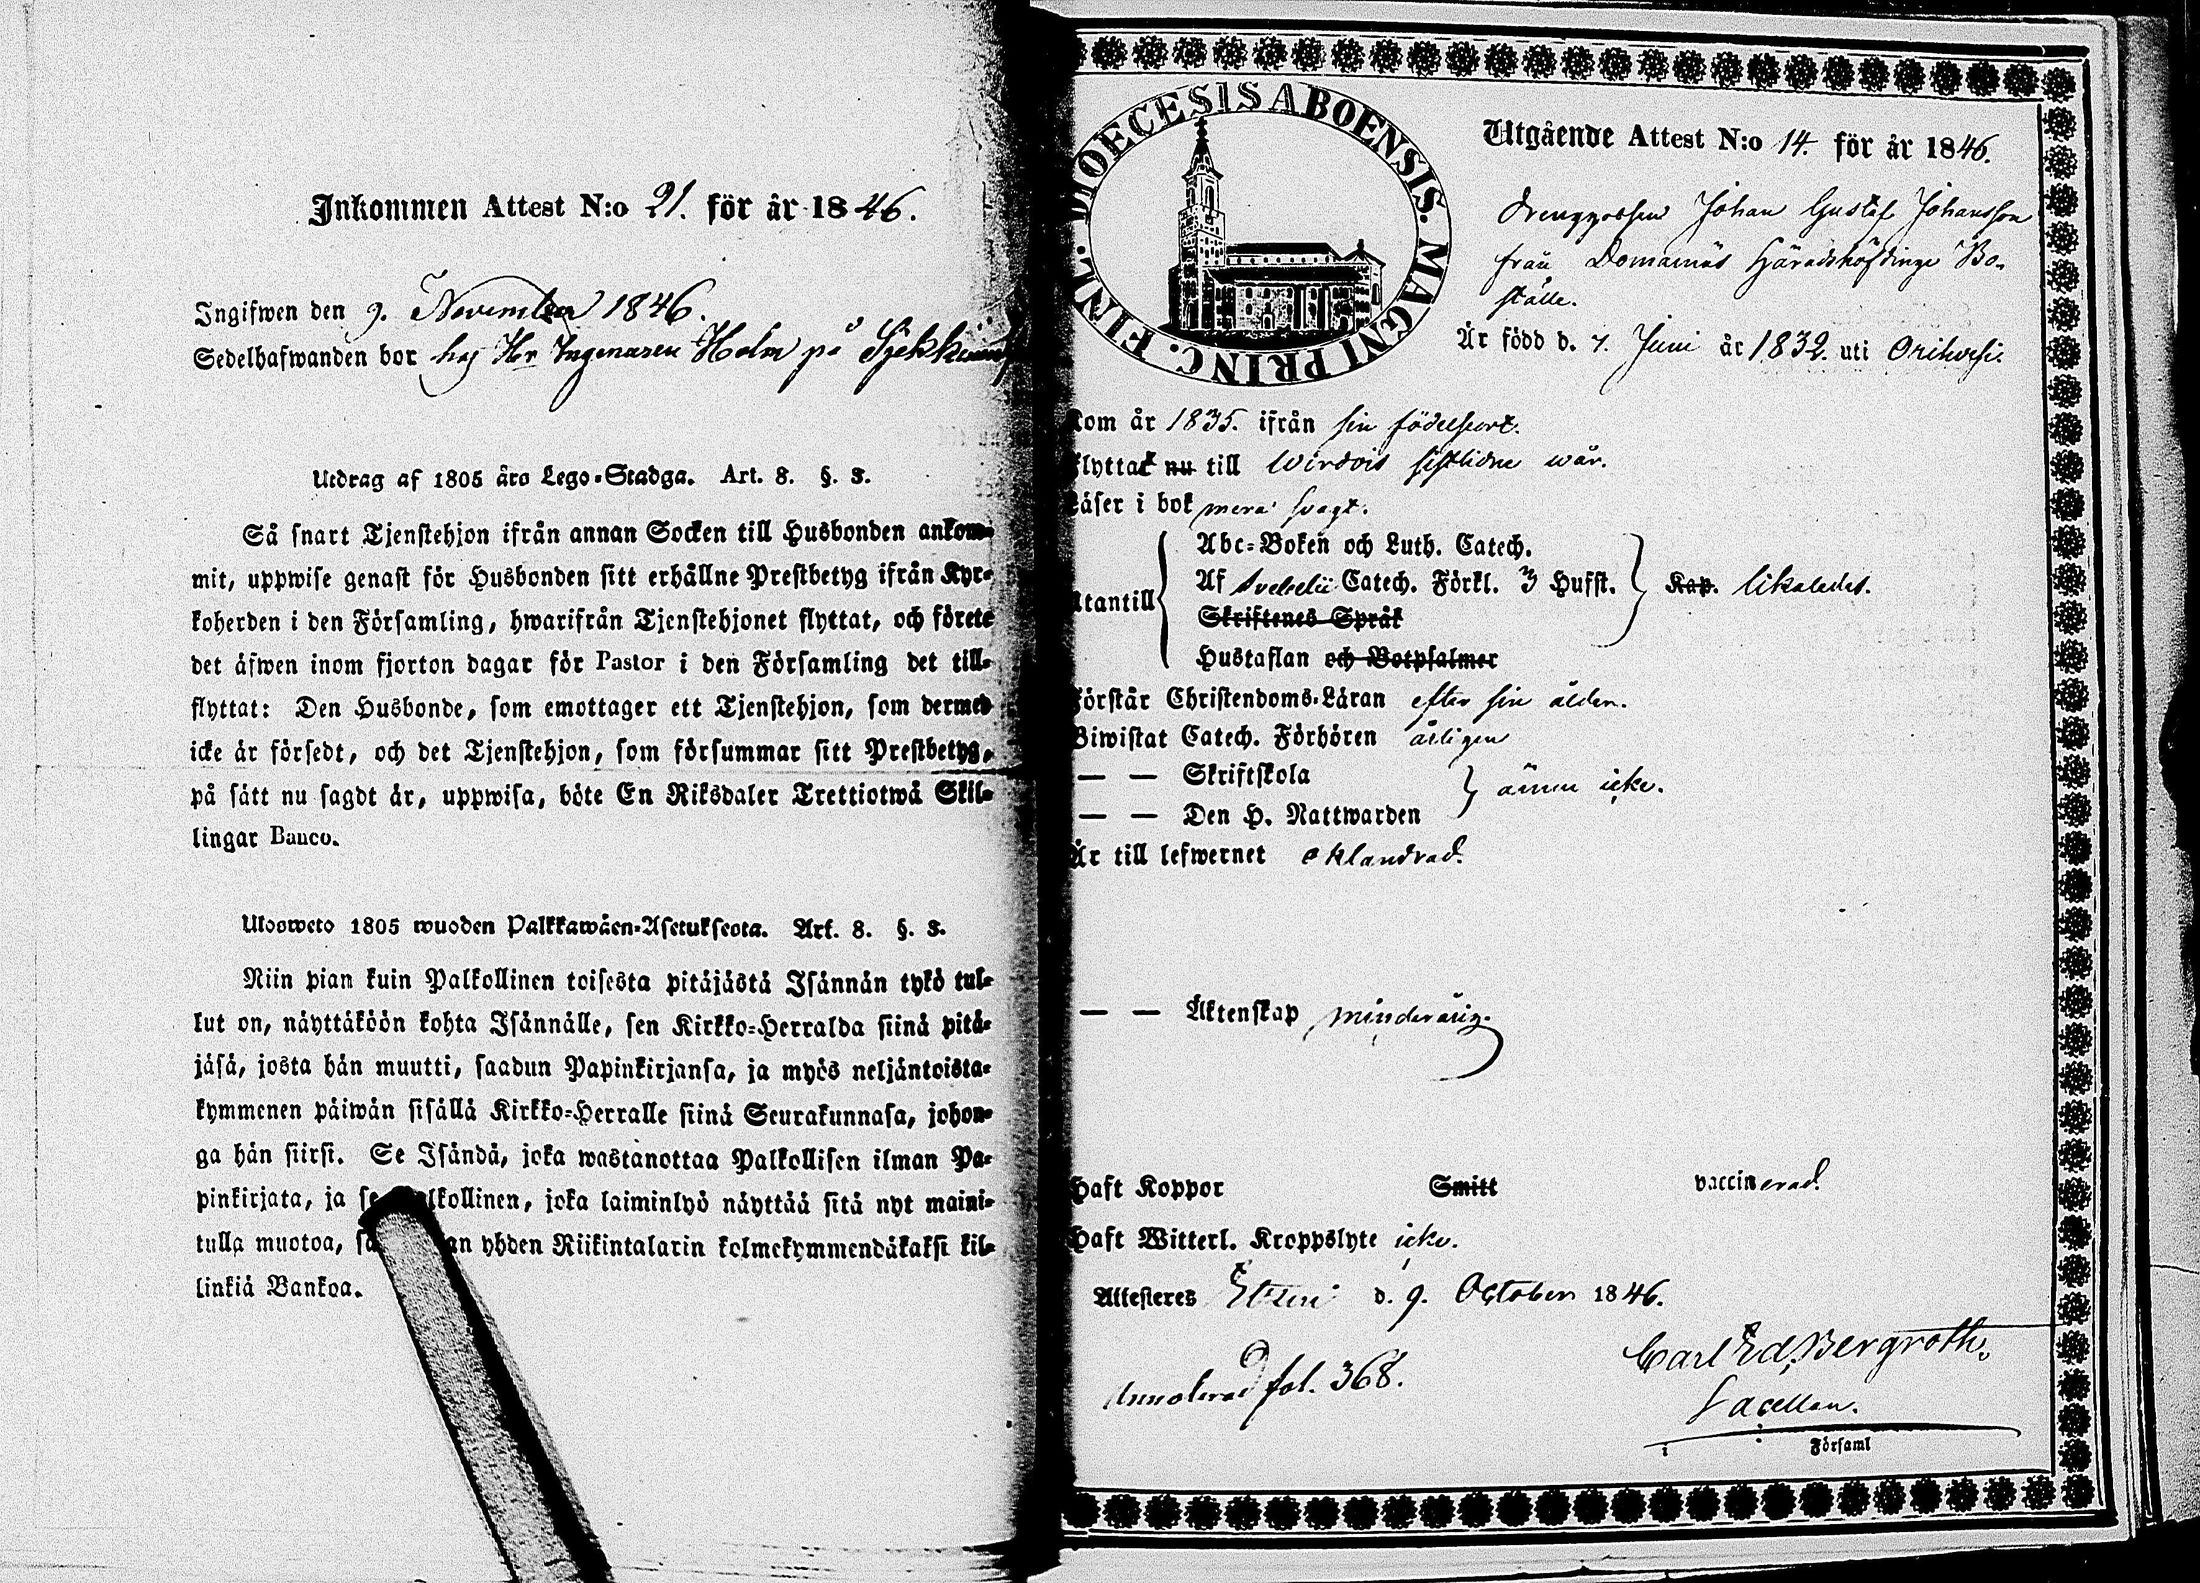 Inkommen Attest N:o 21. för år 1846.
Ingifwen den 9. November 1846.
Sedelhafwanden bor hos Hr Ingenieuren Holm på
Utdrag af 1805 års Lego-Stadga. Art. 8. §. 3.
Så snart Tjenstehjon ifrån annan Socken till Husbonden ankom-
mit, uppwise genast för Husbonden sitt erhållne Prestbetyg ifrån Kyr-
koherden i den Församling, hwarifrån Tjenstehjonet flyttat, och förete
det äfwen inom fjorton dagar för Pastor i den Församling det till-
flyttat: Den Husbonde, som emottager ett Tjenstehjon, som dermed
icke är försedt, och det Tjenstehjon, som försummar sitt Prestbetyg,
på sätt nu sagdt är, uppwisa, böte En Riksdaler Trettiotwå Skil-
lingar Banco.
Ulosweto 1805 wuoden Palkkawäen-Asetuksesta. Art. 8. §. 3.
Niin pian kuin Palkollinen toisesta pitäjästä Isännän tykö tul-
lut on, näyttäköön kohta Isännälle, sen Kirkko-Herralda siinä pitä-
jäsä, josta hän muutti, saadun Papinkirjansa, ja myös neljäntoista-
kymmenen päiwän sisällä Kirkko-Herralle siinä Seurakunnasa, johon-
ga hän siirsi. Se Isändä, joka wastanottaa Palkollisen ilman Pa-
pinkirjata, ja se lkollinen, joka laiminlyö näyttää sitä nyt maini-
tulla muotoa, sa an yhden Riikintalarin kolmekymmendäkaksi kil-
linkiä Bankoa.
FINL. DIOECESIS ABOENSIS. MAGNI PRINC.
Utgående Attest N:o 14. för år 1846.
Drenggossen Johan Gustaf Johansson
från Domarnäs Häradshöfdinge Bo-
ställe.
Är född d. 7. Juni år 1832. uti Orihvesi.
Kom år 1835. ifrån sin födelseort.
Flyttat nu till Wirdois sistlidne wår.
Läser i bok mera svagt.
Abc-Boken och Luth. Catech.
Af Svebelii Catech. Förkl. 3 Hufst.
Utantill
Kap. likaledes.
Skriftenes Språk
Hustaflan och Botpsalmer
Förstår Christendoms-Läran efter sin ålder.
Biwistat Catech. Förhören årligen
— — Skriftskola
ännu icke.
— — Den H. Nattwarden
Är till lefwernet oklandrad.
— — Äktenskap minderårig.
Haft Koppor Smitt vaccinerad.
Haft Witterl. Kroppslyte icke.
Attesteres Etseri d. 9. October 1846.
Carl Ed. Bergroth.
Annoterad fol. 368.
Sacellan.
Församl